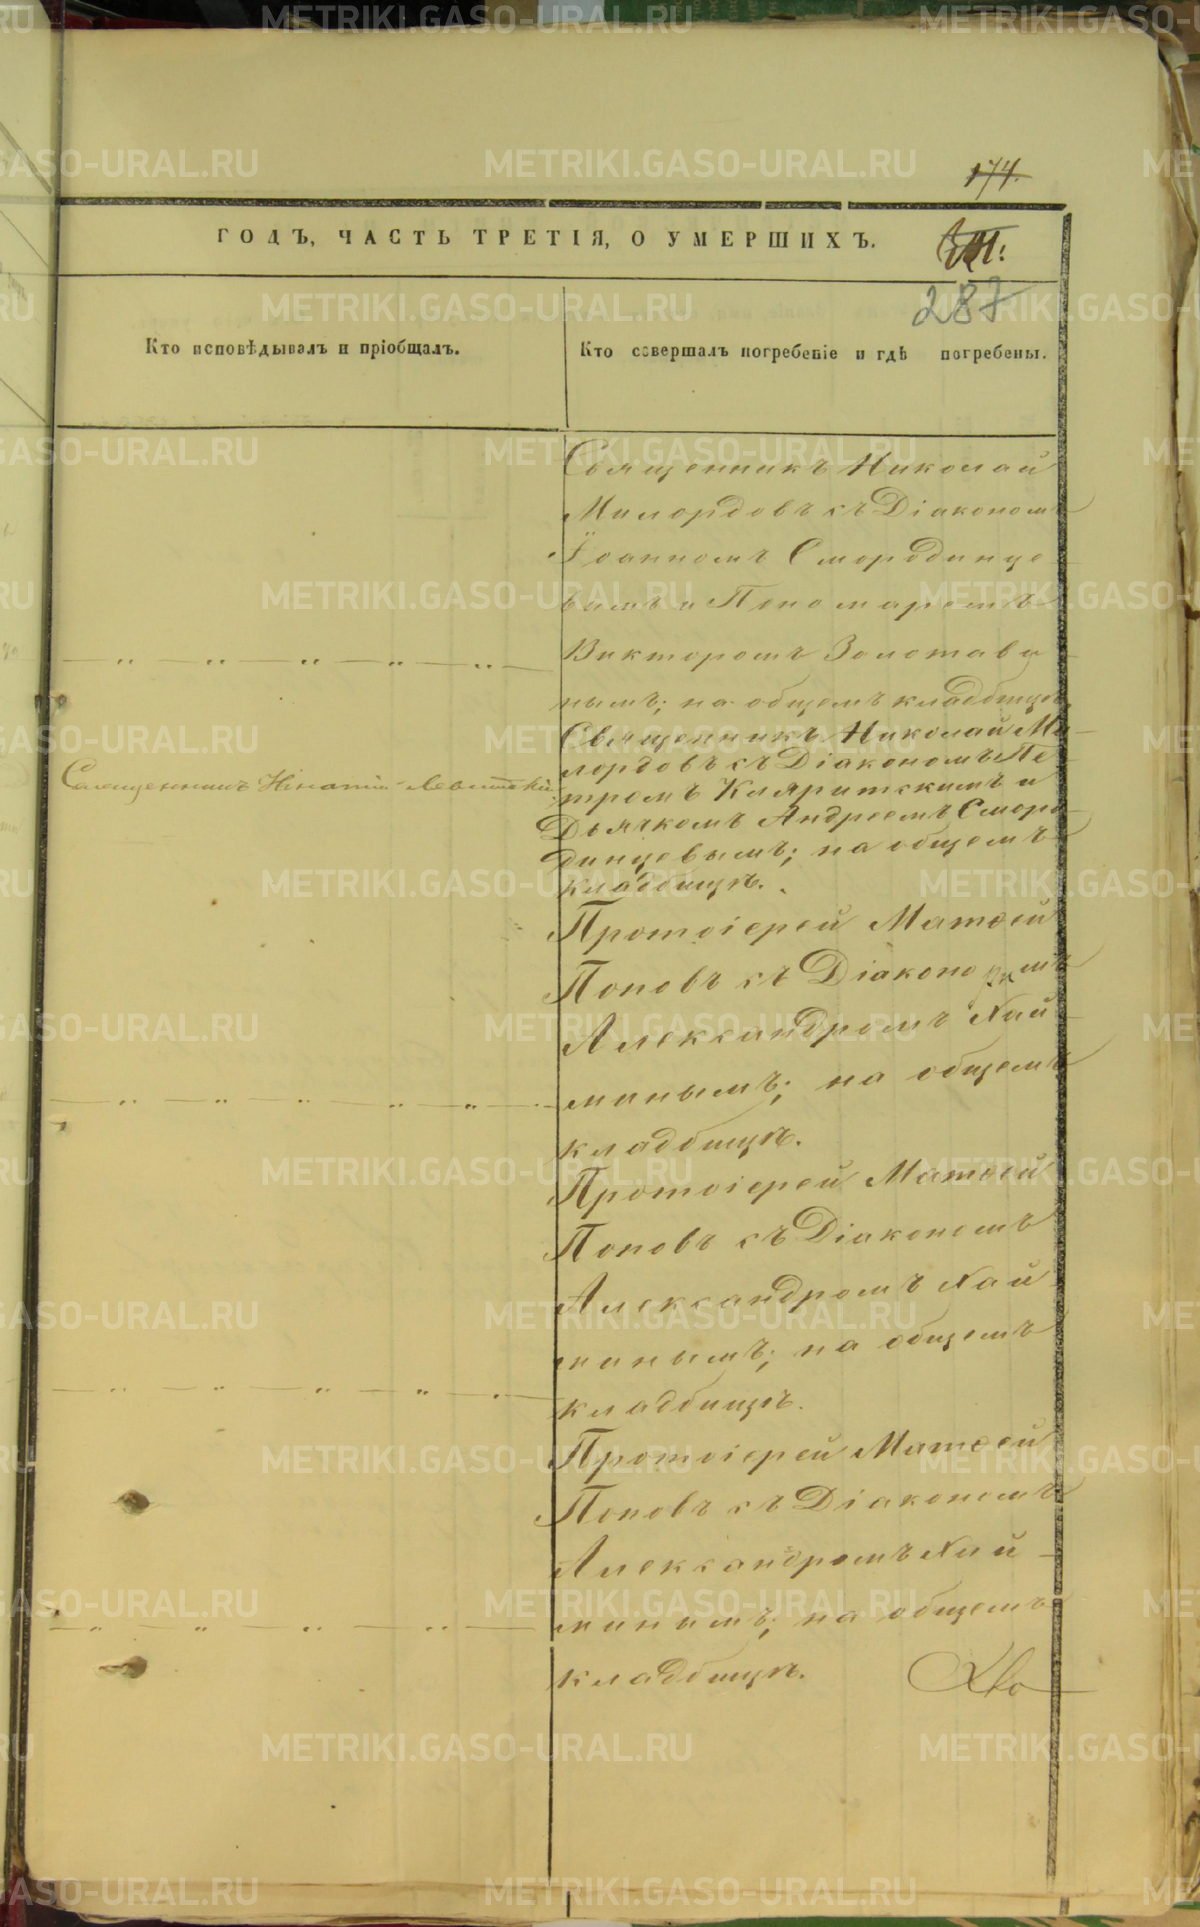 174.
ГОДЪ, ЧАСТЬ ТРЕТІЯ, О УМЕРШИХЪ.
287
Кто исповѣдывалъ и пріобщалъ.
Кто совершалъ погребеніе и гдѣ погребены.
Священникъ Николай
Милордовъ съ Діакономъ
Іоанномъ Смородинце
вымъ и Пономаремъ
Викторомъ Золотави
нымъ; на общемъ кладбищѣ
Священникъ Николай Ми-
лордовъ съ Діакономъ Пе-
тромъ Кляритскимъ и
Дьячкомъ Андреемъ Сморо
динцевымъ; на общемъ
кладбищѣ.
Священникъ Игнатій Левитскій
Протоіерей Матѳей
Поповъ съ Діакономъ
Александромъ Хай
минымъ; на общемъ
кладбищѣ.
Протоіерей Матѳей
Поповъ съ Діакономъ
Александромъ Хай
минымъ; на общемъ
кладбищѣ.
Протоіерей Матѳей
Поповъ съ Діакономъ
Александромъ Хай-
минымъ; на общемъ
кладбищѣ.
METRIKI.GASO-URAL.RU